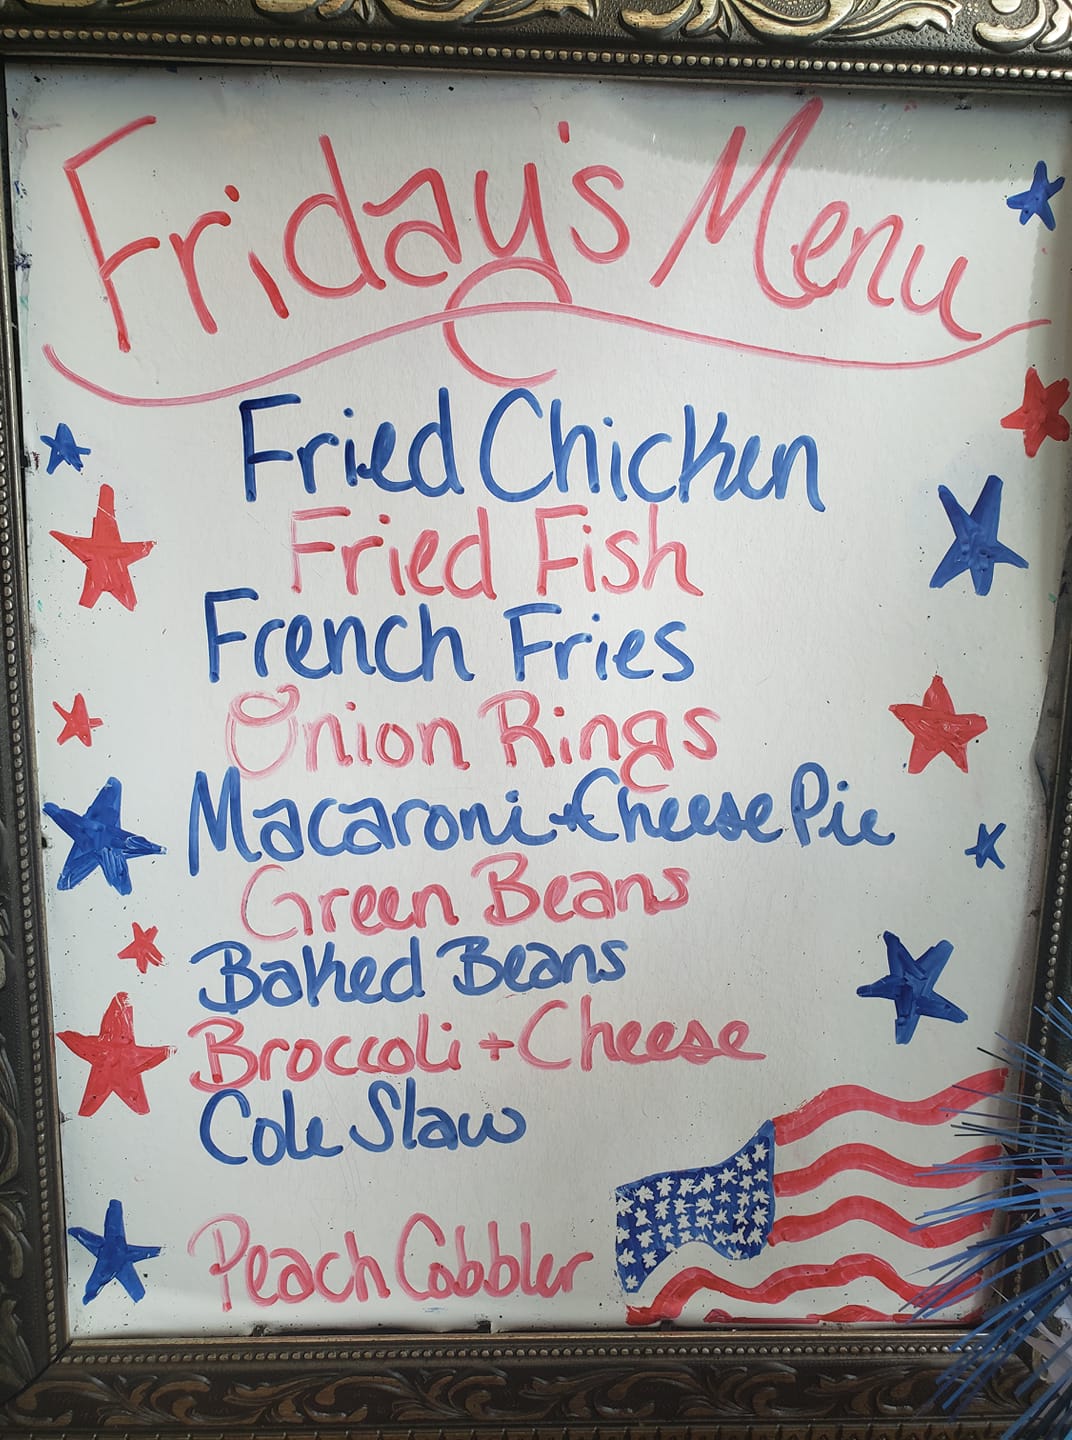 Friday's Menu
Fried Chicken
Fried Fish
French Fries
Onion Rings
Macaroni + Cheese Pie
Green Beans
Baked Beans
Broccoli + Cheese
Cole Slaw
Peach Cobbler